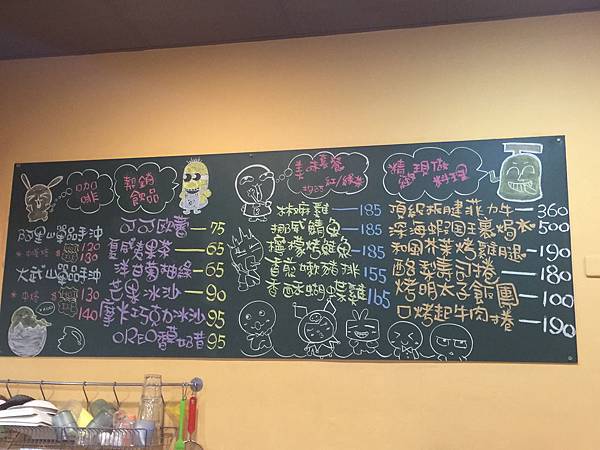 咖啡
阿里山單品手沖
120
130
大武山單品手沖
130
140
熱銷飲品
可可歐蕾—75
夏威夷果茶—65
洋甘菊柚綠—65
芒果冰沙—90
摩卡巧克力冰沙95
OREO香草奶昔95
美味套餐
均附紅/綠茶
椒麻雞—185
挪威鯖魚—185
檸檬烤鯰魚—185
嫩豬排155
香酥蝴蝶雞165
精緻現做料理
頂級板腱菲力牛—360
深海蝦國王焗烤500
和風炸烤雞腿—190
酪梨壽司捲—180
烤明太子飯團—100
烤起牛肉捲—190